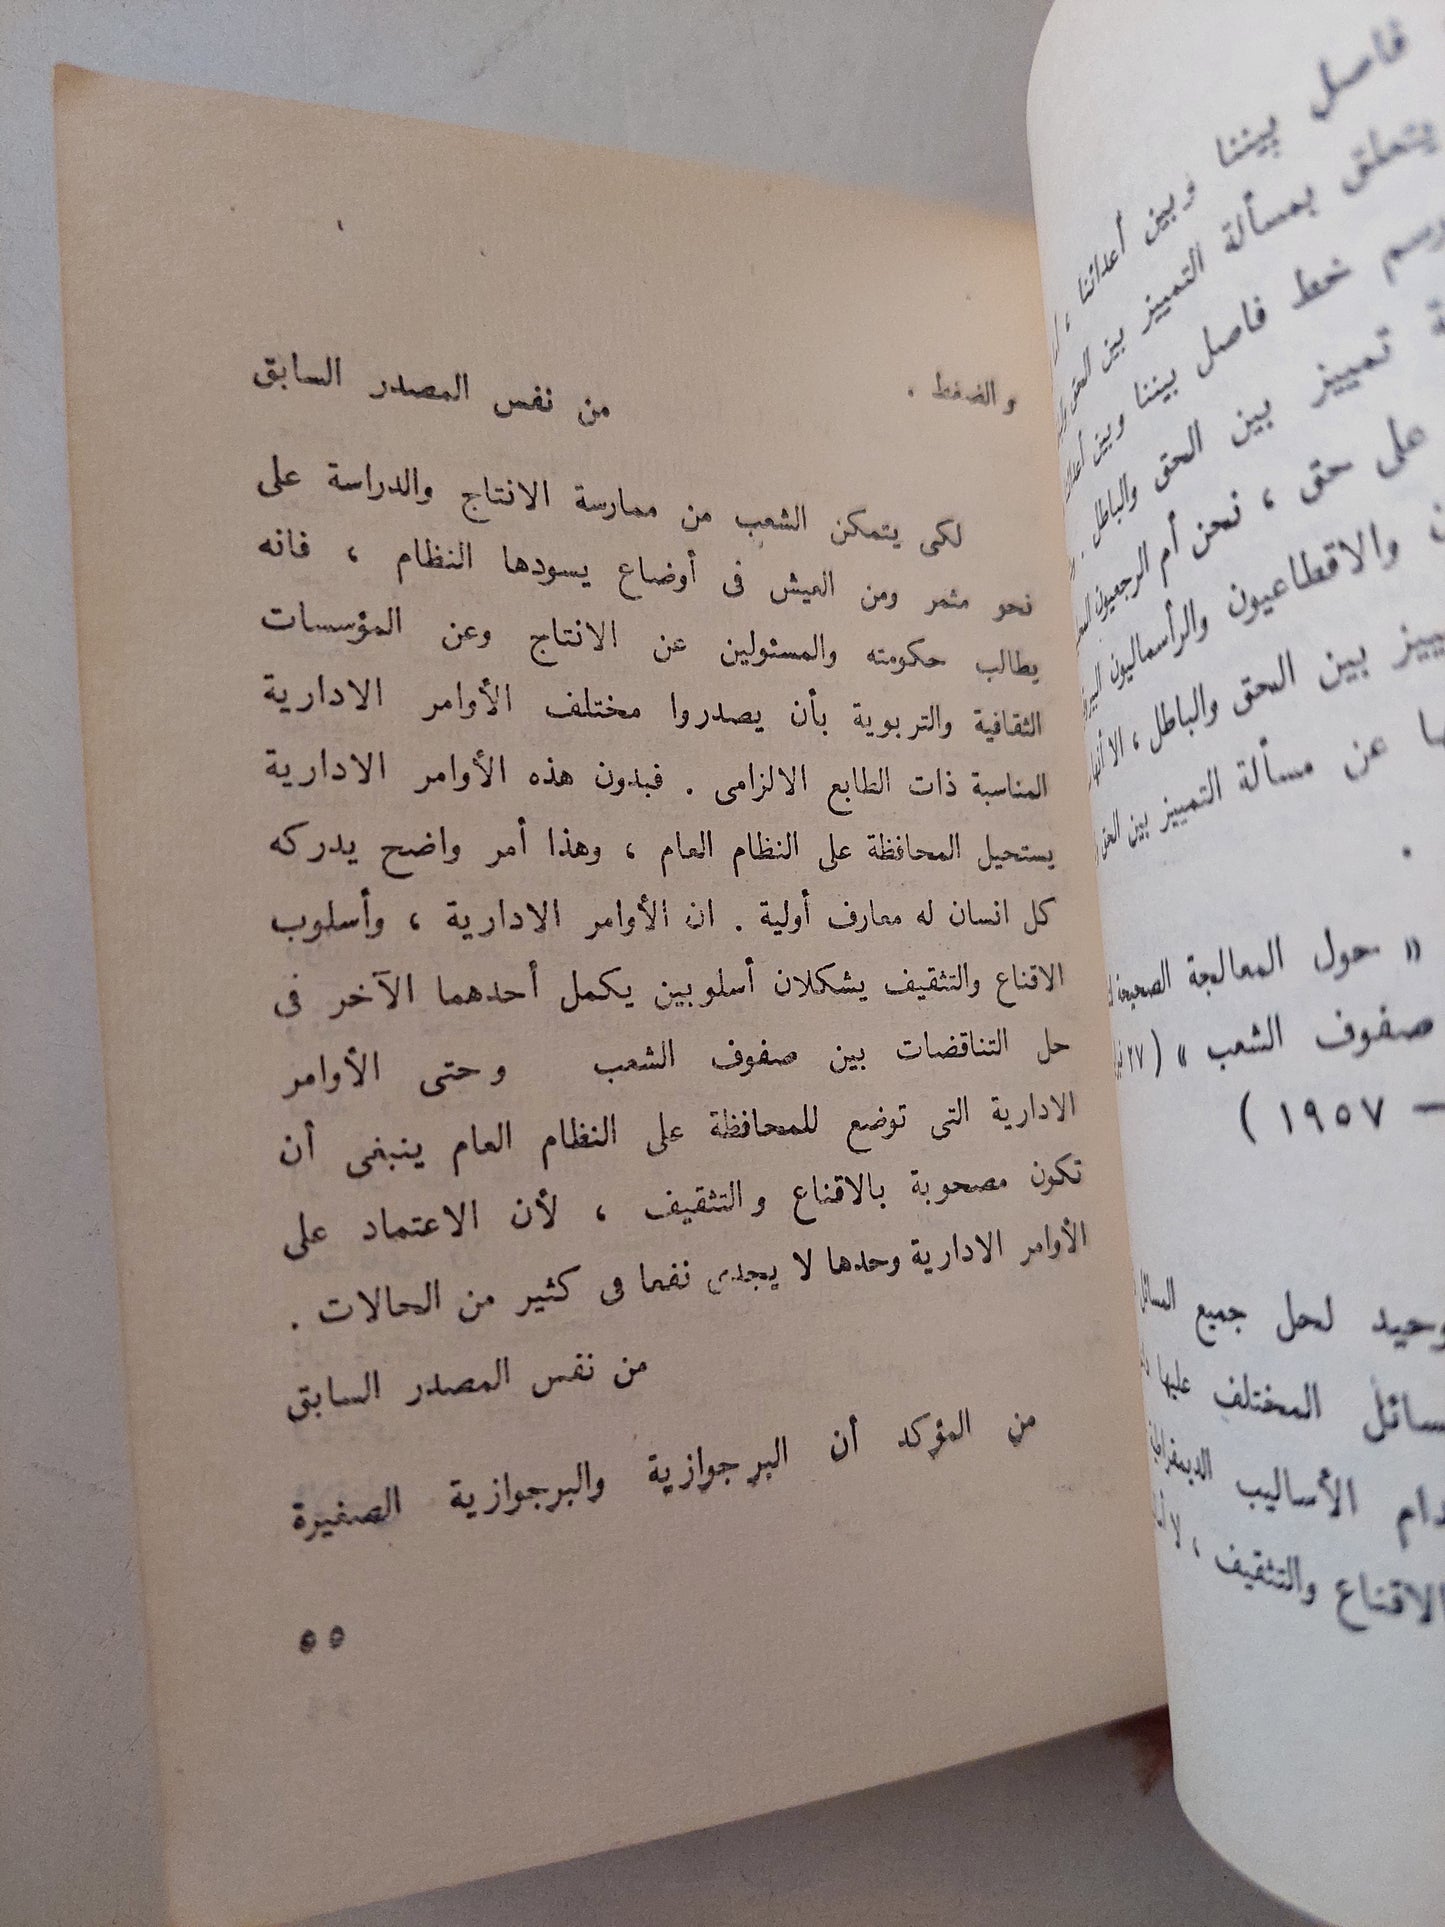 فاصل بيننا وبين أعدائنا ،
يتعلق بمسألة التمييز بين الحق
ورسم خط فاصل بيننا وبين
تمييز بين الحق والباطل .
على حق ، نحن أم الرجعيون
والاقطاعيون والرأسماليون
بين الحق والباطل ، الا أنها
عن مسألة التمييز بين الحق
.
« حول المعالجة الصحيحة
صفوف الشعب » ( ٢٧
— ١٩٥٧ )
لحل جميع المسائل
المختلف عليها
الأساليب
الاقناع والتثقيف ، لا
والضغط .
من نفس المصدر السابق
لكى يتمكن الشعب من ممارسة الانتاج والدراسة على
نحو مثمر ومن العيش فى أوضاع يسودها النظام ، فانه
يطالب حكومته والمسئولين عن الانتاج وعن المؤسسات
الثقافية والتربوية بأن يصدروا مختلف الأوامر الادارية
المناسبة ذات الطابع الالزامى . فبدون هذه الأوامر الادارية
يستحيل المحافظة على النظام العام ، وهذا أمر واضح يدركه
كل انسان له معارف أولية . ان الأوامر الادارية ، وأسلوب
الاقناع والتثقيف يشكلان أسلوبين يكمل أحدهما الآخر فى
حل التناقضات بين صفوف الشعب وحتى الأوامر
الادارية التى توضع للمحافظة على النظام العام ينبغى أن
تكون مصحوبة بالاقناع والتثقيف ، لأن الاعتماد على
الأوامر الادارية وحدها لا يجدى نفعا فى كثير من الحالات .
من نفس المصدر السابق
من المؤكد أن البرجوازية والبرجوازية الصغيرة
٥٥